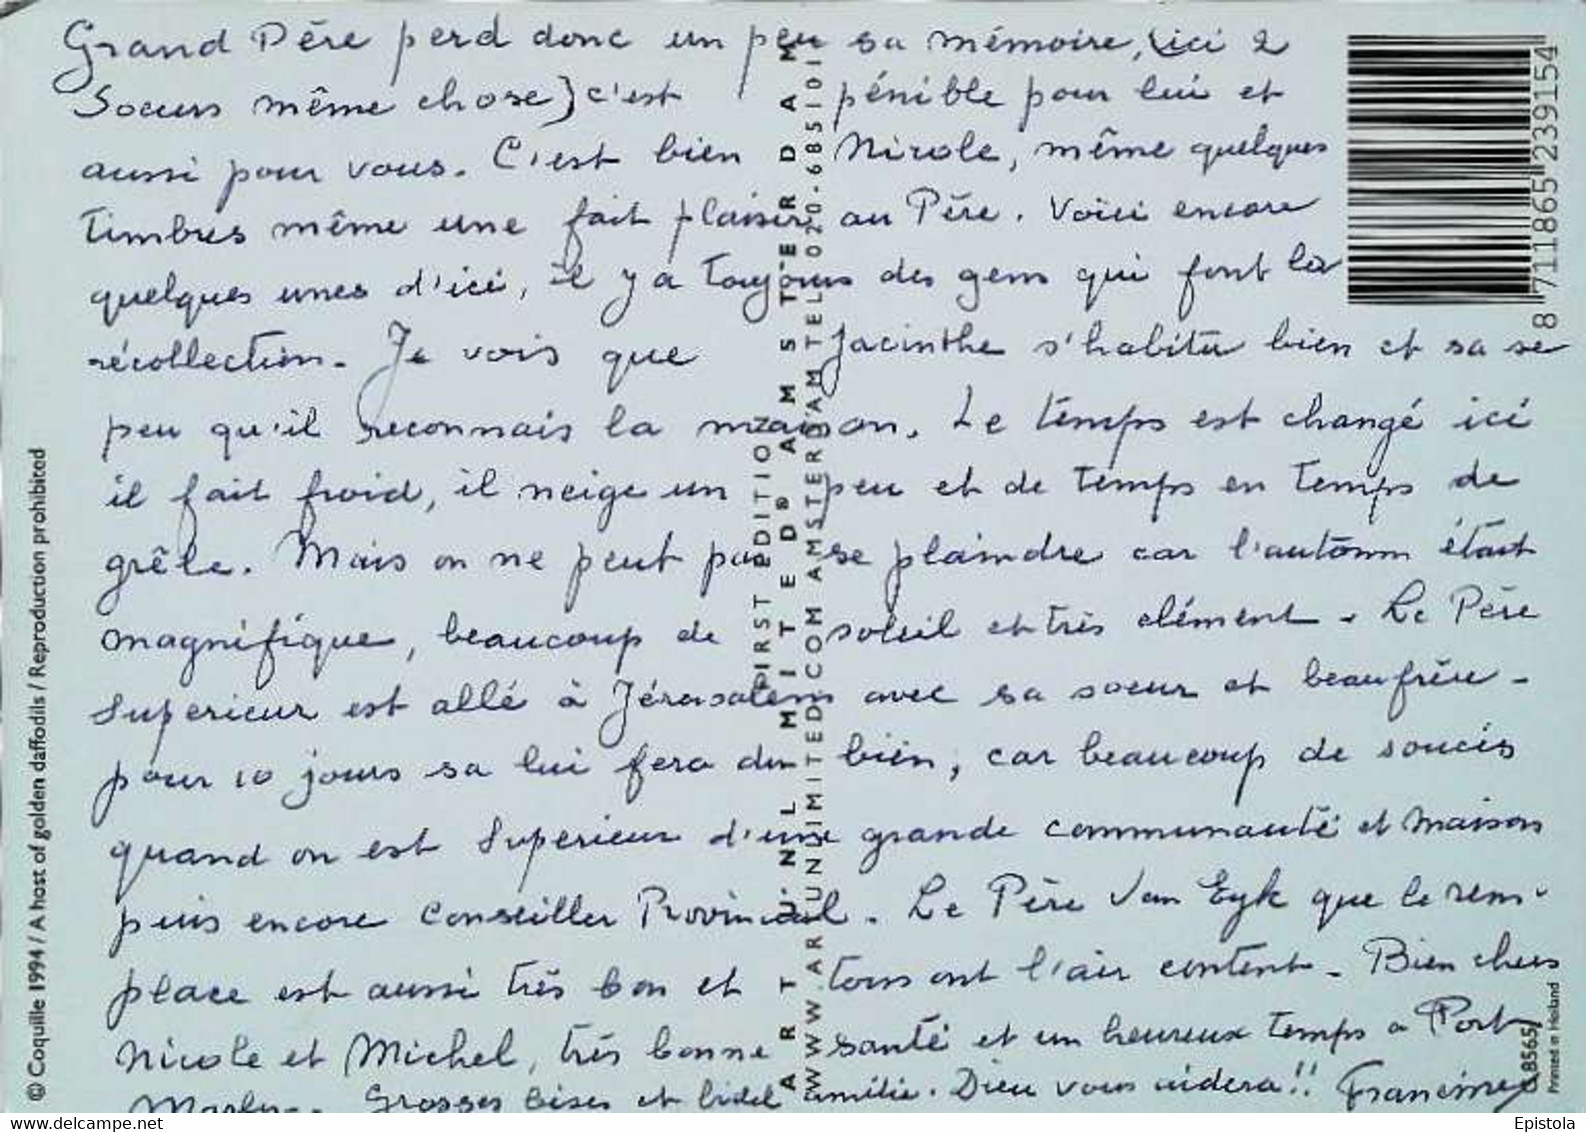 Grand Père perd donc un peu sa mémoire, (ici 2
Soeurs même chose) c'est pénible pour lui et
aussi pour vous. C'est bien Nicole, même quelques
timbres même une fait plaisir au Père. Voici encore
quelques unes d'ici, il y a toujours des gens qui font la
récollection. Je vois que Jacinthe s'habitu bien et sa se
peu qu'il reconnais la maison. Le temps est changé ici
il fait froid, il neige un peu et de temps en temps de
grêle. Mais on ne peut pas se plaindre car l'automn était
magnifique, beaucoup de soleil et très clément. Le Père
Superieur est allé à Jérusalem avec sa soeur et beaufrère.
pour 10 jours sa lui fera du bien, car beaucoup de soucis
quand on est Superieur d'une grande communauté et maison
puis encore Conseiller Provincial. Le Père Van Eyk que le rem-
place est aussi très bon et tous ont l'air content. Bien chers
Nicole et Michel, très bonne santé et un heureux temps a Port
Marly. Grosses bises et fidel amitié. Dieu vous aidera!! Francine
© Coquille 1994 / A host of golden daffodils / Reproduction prohibited
FIRST EDITION
ART UNLIMITED® AMSTERDAM
WWW.ARTUNLIMITED.COM AMSTERDAM TEL 020-685101
8 711865 239154
Printed in Holland
Epistola